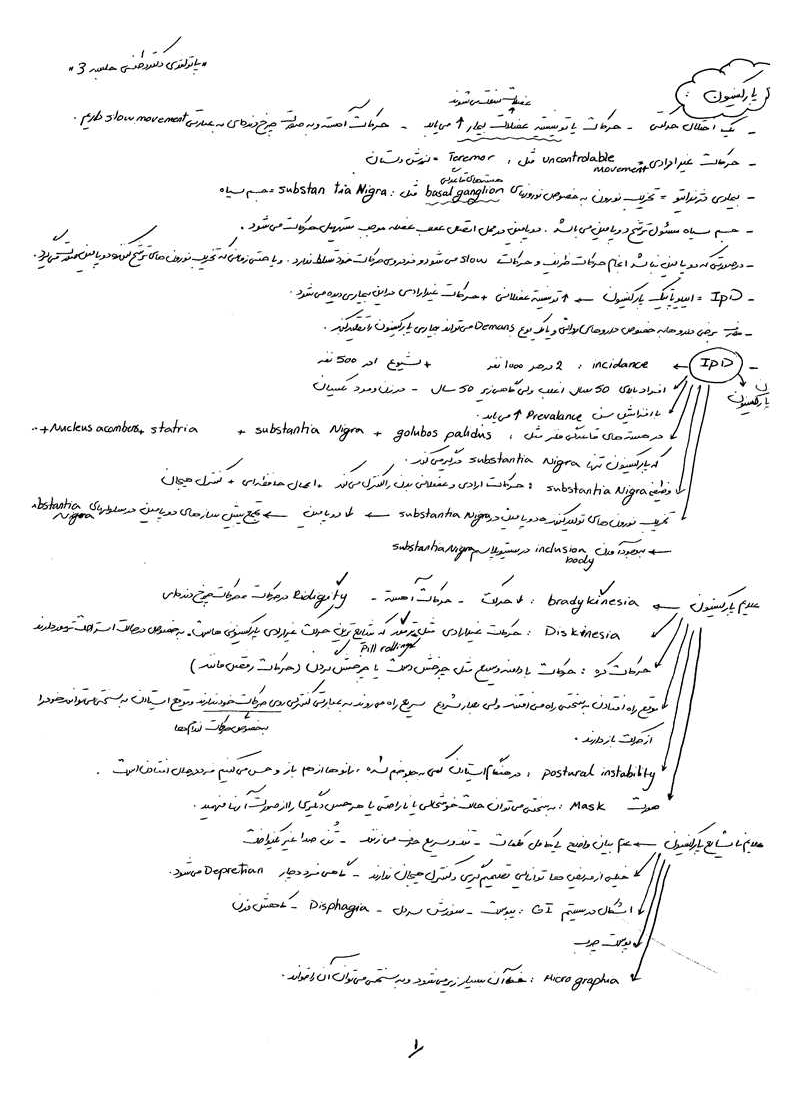 "پاتولوژی دکتر جلسه 3"
پارکینسون :
عضلات سفت می شوند
_ یک اختلال حرکتی _ حرکات با تونیسیته عضلات بیمار ↑ می یابد _ حرکات آهسته و به صورت چرخ دنده ای به عبارتی slow movement داریم .
_ حرکات غیرارادی uncontrolable movement مثل : Teremor = لرزش دستان
هسته های قاعده ای
_ بیماری دژنراتیو = تخریب نورون به خصوص نورونهای basal ganglion مثل : substan tia Nigra = جسم سیاه
_ جسم سیاه مسئول ترشح دوپامین می باشد . دوپامین در محل اتصال عصب عضله موجب تسهیل حرکات می شود .
_ درصورتی که دوپامین نباشد انجام حرکات ظریف و حرکات slow می شود و فرد روی حرکات خود تسلط ندارد . و یا حتی زمانی که تخریب نورون های ترشح کننده دوپامین صورت می گیرد .
_ IPD = ایدیوپاتیک پارکینسون ← ↑ تونیسیته عضلانی + حرکات غیرارادی در این بیماری دیده می شود .
_ مصرف برخی داروها به خصوص داروهای روانی و یا یک نوع Demans می تواند بیماری پارکینسون را تقلید کند .
_ IPD ← incidance : 2 در هر 1000 نفر + شیوع از هر 500 نفر
پارکینسون
افراد بالای 50 سال اغلب ولی گاهی زیر 50 سال _ در زن و مرد یکسان
با افزایش سن Prevalance ↑ می یابد .
در هسته های قاعده ای مغز مثل : golubos palidus + substantia Nigra + Nucleus acombens + statria + ..
که پارکینسون تنها substantia Nigra درگیر می کند .
وظیفه substantia Nigra : حرکات ارادی و عضلانی بدن را کنترل می کند + اعمال حافظه ای + کنترل هیجان
تخریب نورون های تولید کننده دوپامین در substantia Nigra ← ↓ دوپامین ← تجمع پیش سازهای دوپامین در سلولهای substantia Nigra
← به وجود آمدن inclusion body در سیتوپلاسم substantia Nigra
علایم پارکینسون ← bradykinesia : ↓ حرکت _ حرکات آهسته _ Ridigity در حرکات = حرکات چرخ دنده ای
Diskinesia : حرکات غیرارادی مثل ترمور که شایع ترین حرکت غیرارادی پارکینسونی هاست . به خصوص در حالت استراحت ترمور دارند
Pill rolling
حرکات کره : حرکات با دامنه وسیع مثل چرخش دست یا چرخش گردن (حرکات رقص مانند)
موقع راه افتادن به سختی راه می افتند ولی بعد از شروع سریع راه می روند به عبارتی کنترلی روی حرکات خود ندارند و موقع ایستادن به سختی می توانند خود را
به خصوص حرکات اندام ها
از حرکت باز دارند .
postural instability : در هنگام ایستادن کمی به جلو خم شده ، زانوها از هم باز و حس می کنیم فرد در حال افتادن است .
صورت Mask : به سختی می توان حالت خوشحالی یا ناراحتی یا هر حس دیگری را از صورت آنها فهمید .
علایم ناشایع پارکینسون ← عدم بیان واضح یا کامل کلمات _ تند و سریع حرف می زنند _ تُن صدا غیریکنواخت
خیلی از مریض ها توانایی تصمیم گیری و کنترل هیجان ندارند _ گاهی فرد دچار Depretion می شود .
اشکال در سیستم GI : یبوست _ سوزش سردل _ Disphagia _ کاهش وزن
پوست چرب
Micrographia : خط آن بسیار ریز می شود و به سختی می توان آن را خواند .
1